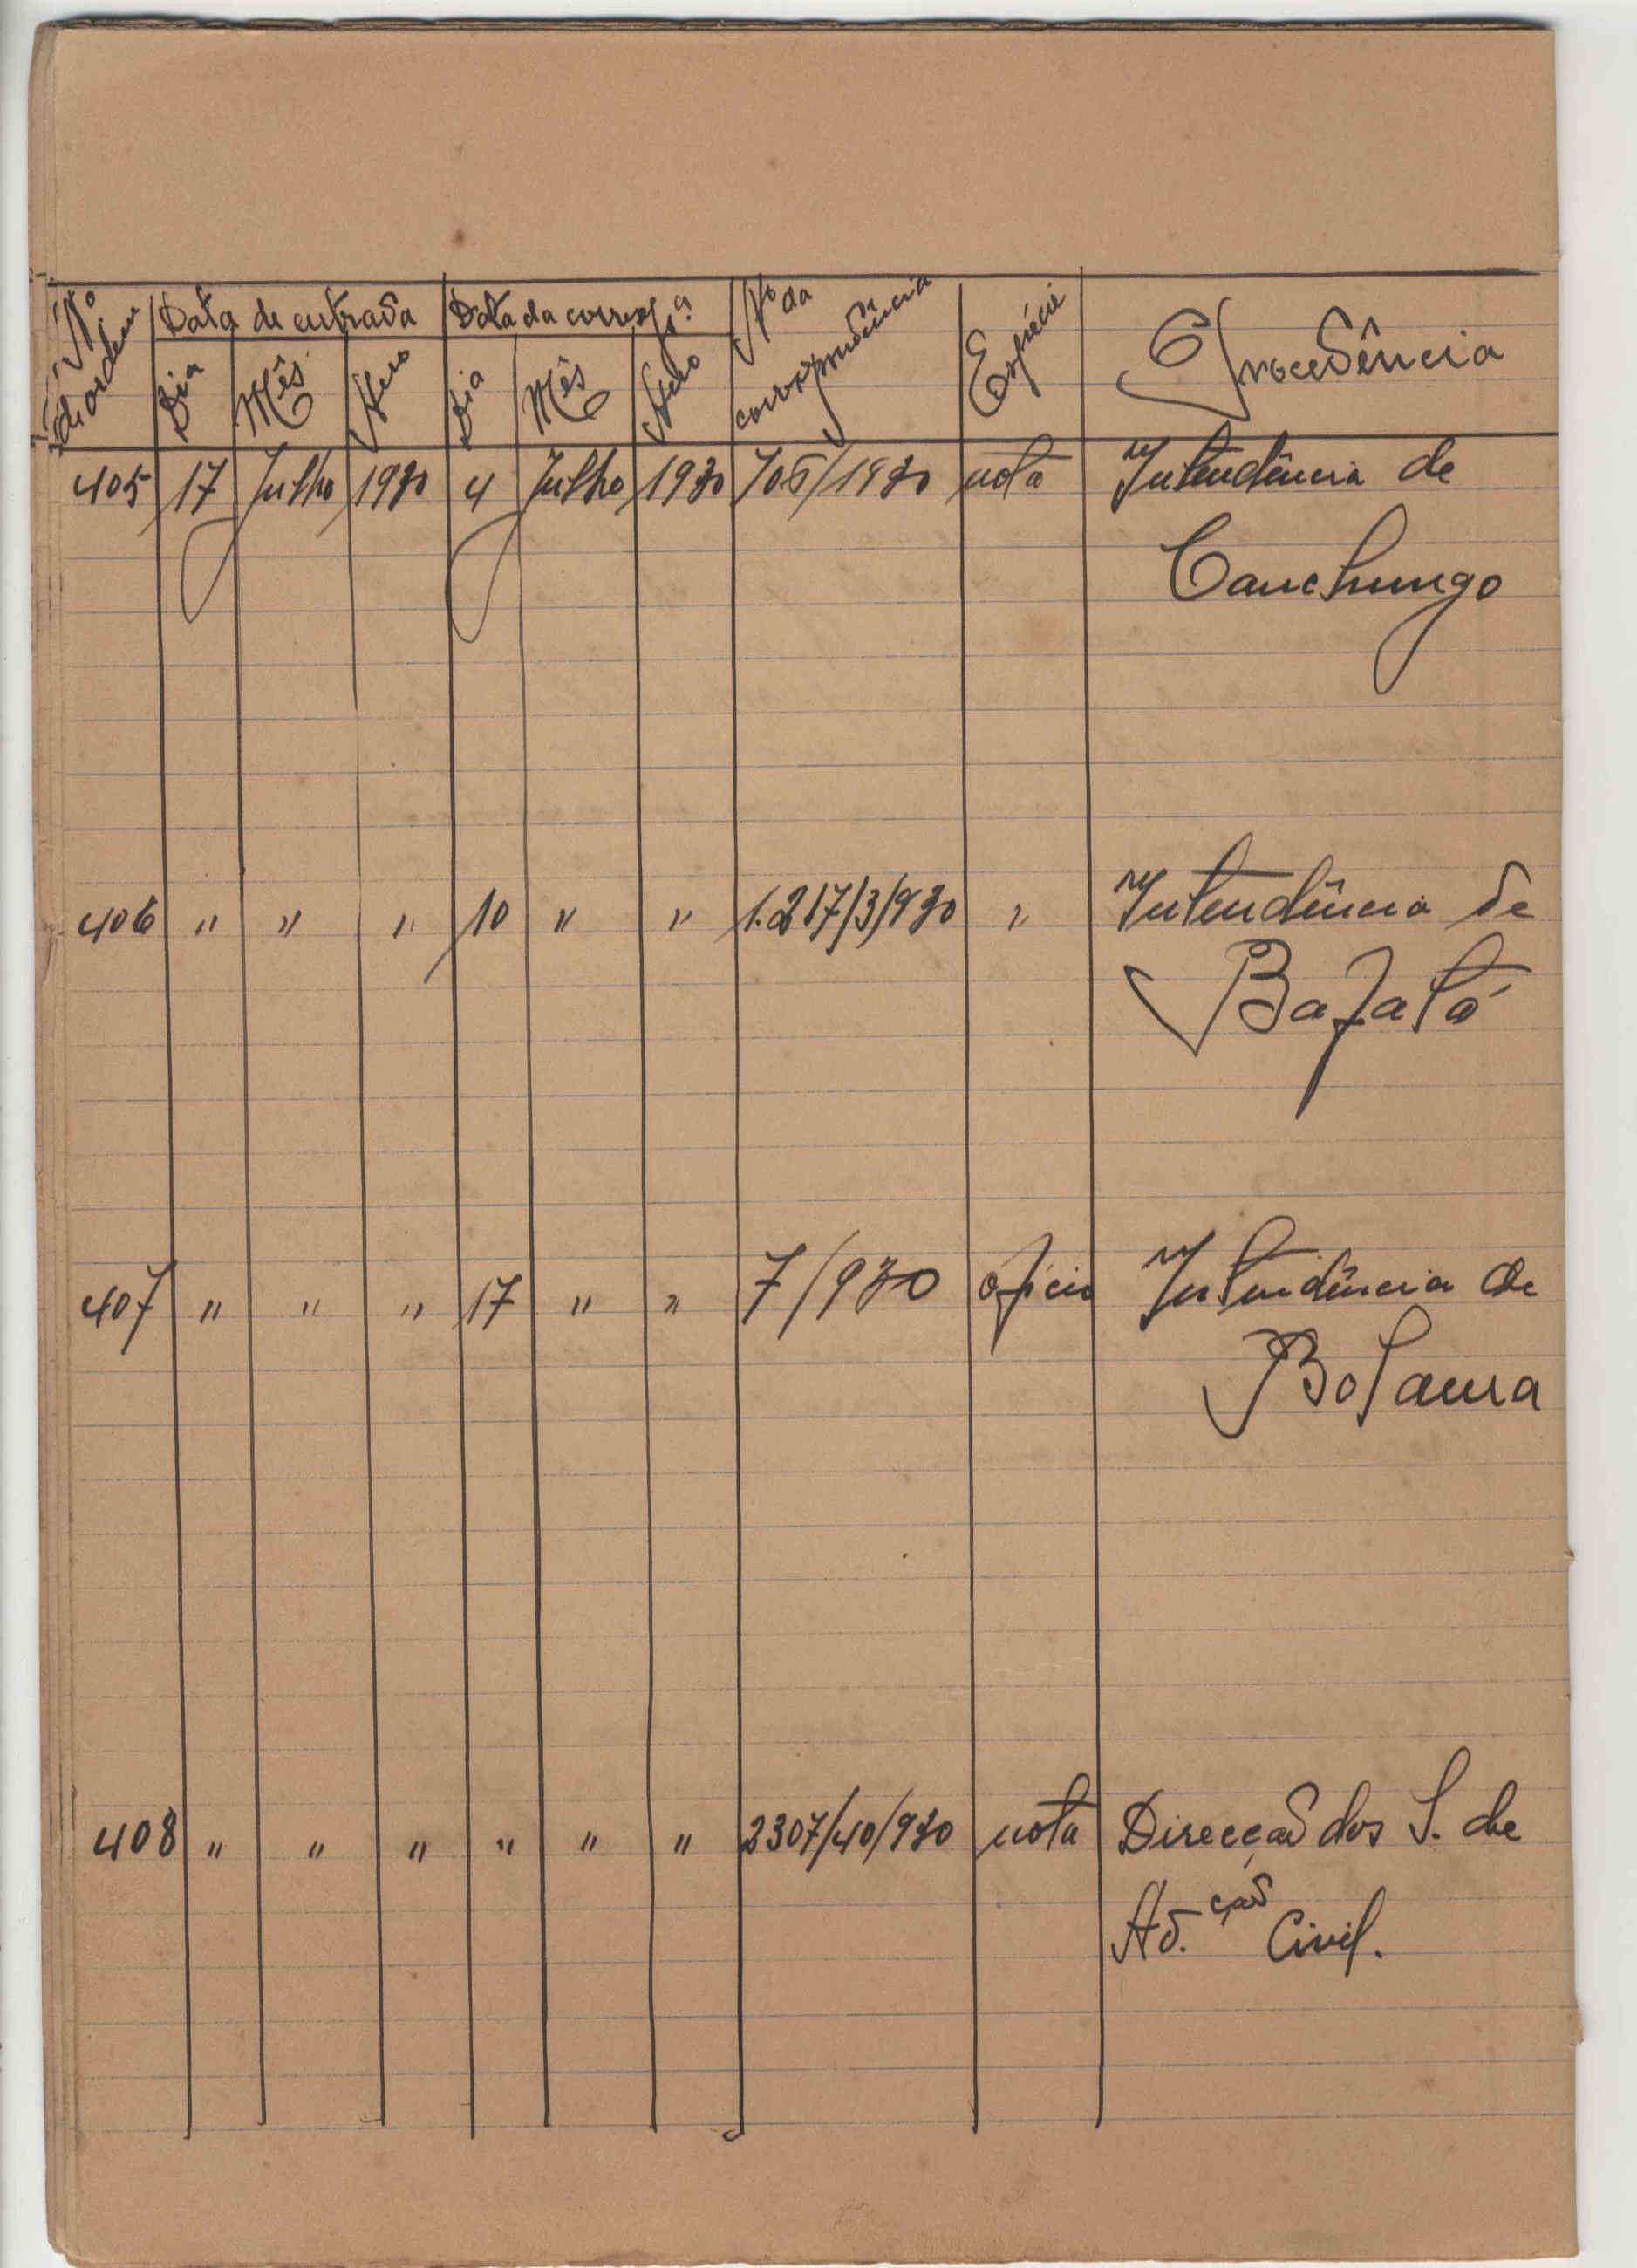 Nº de ordem | Data de entrada | Data da corresp.ª | Nº da correspondência | Espécie | Procedência
Dia | Mês | Ano | Dia | Mês | Ano
405 | 17 | Julho | 1930 | 4 | Julho | 1930 | 705/1930 | nota | Intendência de
Canchungo
406 | " | " | " | 10 | " | " | 1.217/3/930 | " | Intendência de
Bafatá
407 | " | " | " | 17 | " | " | 7/930 | ofício | Intendência de
Bolama
408 | " | " | " | " | " | " | 2307/40/930 | nota | Direcção dos S. de
Ad.ção Civil.